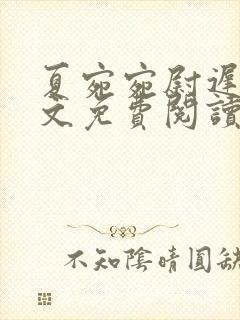 夏宛宛尉遲
文免費閱讀
不知陰晴圓缺